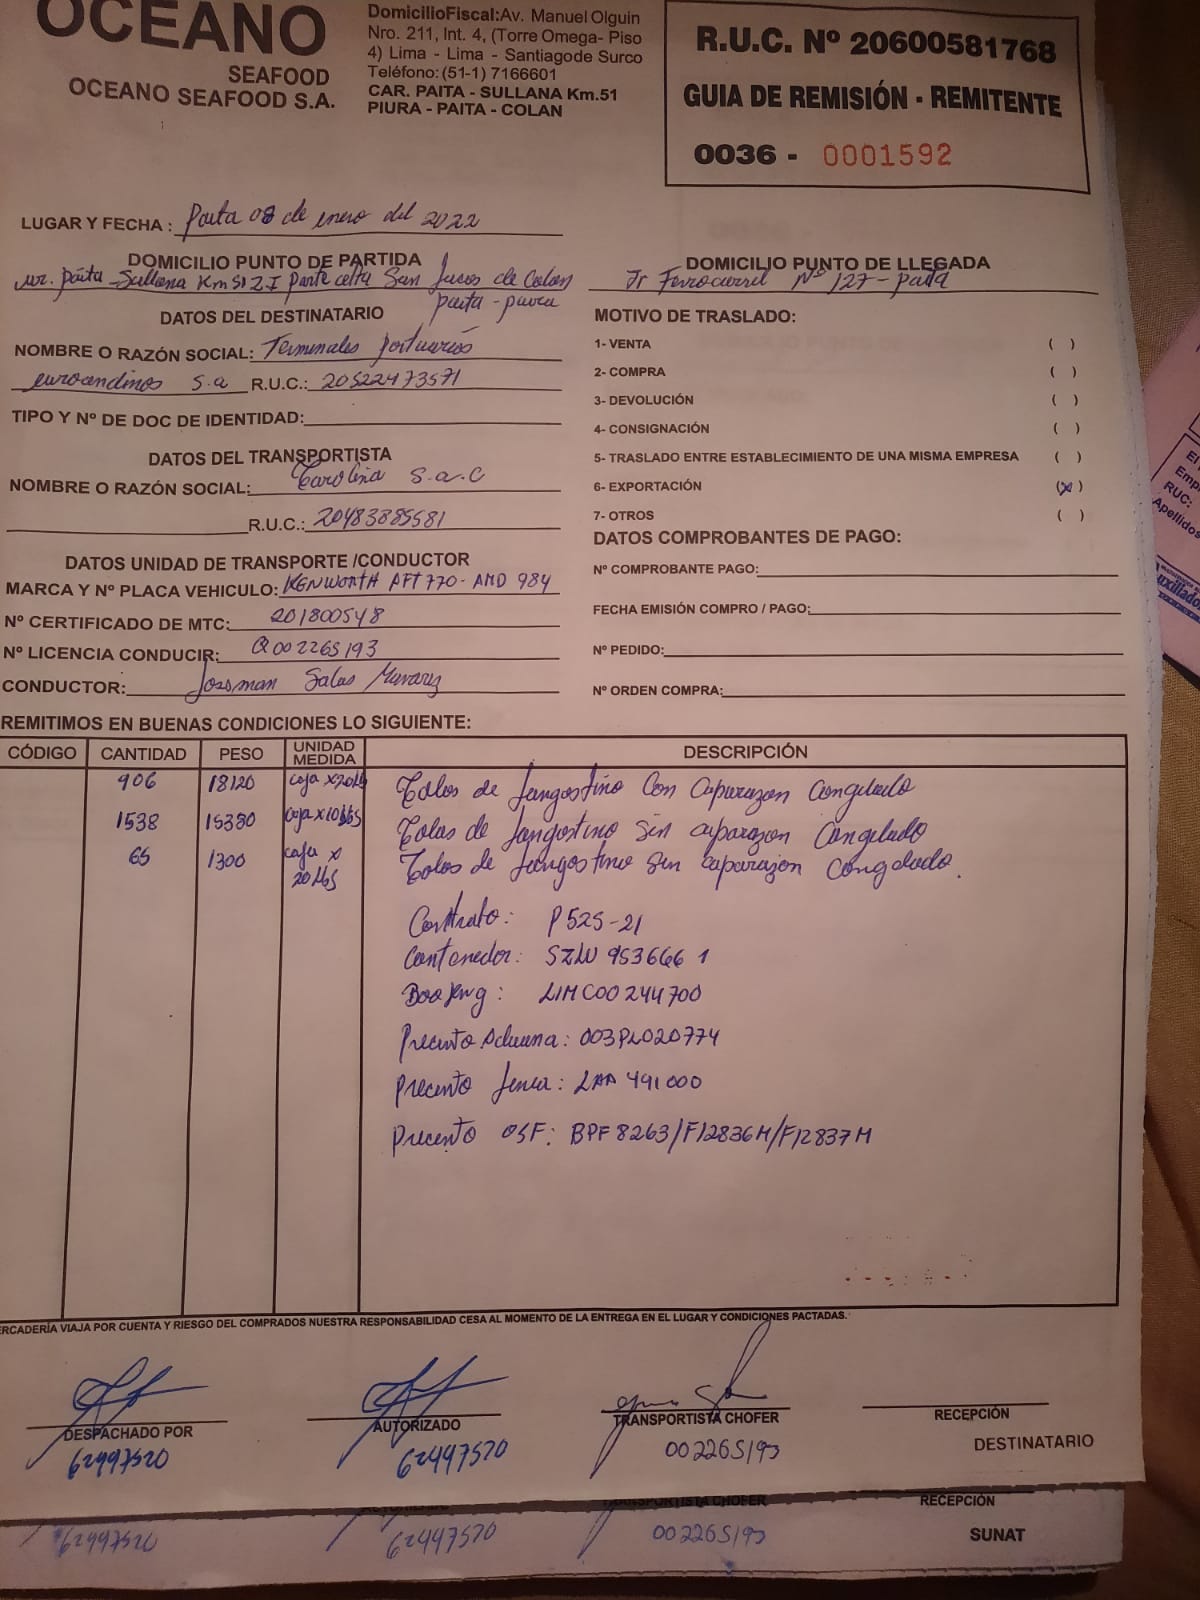 OCEANO
SEAFOOD
OCEANO SEAFOOD S.A.
DomicilioFiscal:Av. Manuel Olguin
Nro. 211, Int. 4, (Torre Omega- Piso
4) Lima - Lima - Santiagode Surco
Teléfono: (51-1) 7166601
CAR. PAITA - SULLANA Km.51
PIURA - PAITA - COLAN
R.U.C. Nº 20600581768
GUIA DE REMISIÓN - REMITENTE
0036 - 0001592
LUGAR Y FECHA : Paita 08 de enero del 2022
DOMICILIO PUNTO DE PARTIDA
Paita - Sullana Km 51 Z.I San Lucas de Colan
paita - piura
DOMICILIO PUNTO DE LLEGADA
Jr Ferrocarril Nº 127 - paita
DATOS DEL DESTINATARIO
NOMBRE O RAZÓN SOCIAL: Terminales portuarios
euroandinos s.a R.U.C.: 20522473571
TIPO Y Nº DE DOC DE IDENTIDAD:
DATOS DEL TRANSPORTISTA
NOMBRE O RAZÓN SOCIAL: Carolina s.a.c
R.U.C.: 20483885581
DATOS UNIDAD DE TRANSPORTE /CONDUCTOR
MARCA Y Nº PLACA VEHICULO: KENWORTH AFT 770 - AMD 984
Nº CERTIFICADO DE MTC: 201800548
Nº LICENCIA CONDUCIR: Q002265193
CONDUCTOR: Salas
MOTIVO DE TRASLADO:
1- VENTA ( )
2- COMPRA ( )
3- DEVOLUCIÓN ( )
4- CONSIGNACIÓN ( )
5- TRASLADO ENTRE ESTABLECIMIENTO DE UNA MISMA EMPRESA ( )
6- EXPORTACIÓN (x)
7- OTROS ( )
DATOS COMPROBANTES DE PAGO:
Nº COMPROBANTE PAGO:
FECHA EMISIÓN COMPRO / PAGO:
Nº PEDIDO:
Nº ORDEN COMPRA:
REMITIMOS EN BUENAS CONDICIONES LO SIGUIENTE:
CÓDIGO CANTIDAD PESO UNIDAD MEDIDA DESCRIPCIÓN
906 18120 caja x20lbs Colas de langostino con caparazon congelado
1538 15380 caja x10lbs Colas de langostino sin caparazon congelado
65 1300 caja x 20lbs Colas de langostino sin caparazon congelado.
Contrato: P525-21
Contenedor: SZLU 953666 1
Booking: LIMC00244700
Precinto Aduana: 003PL020774
Precinto Linea: LAA 491000
Precinto OSF: BPF 8263/F12836M/F12837M
ERCADERÍA VIAJA POR CUENTA Y RIESGO DEL COMPRADOS NUESTRA RESPONSABILIDAD CESA AL MOMENTO DE LA ENTREGA EN EL LUGAR Y CONDICIONES PACTADAS.
DESPACHADO POR
62447520
AUTORIZADO
62447520
TRANSPORTISTA CHOFER
002265193
RECEPCIÓN
DESTINATARIO
TRANSPORTISTA CHOFER
RECEPCIÓN
62447520
62447520
002265193
SUNAT
El
Emp
RUC:
Apellidos
uxiliado